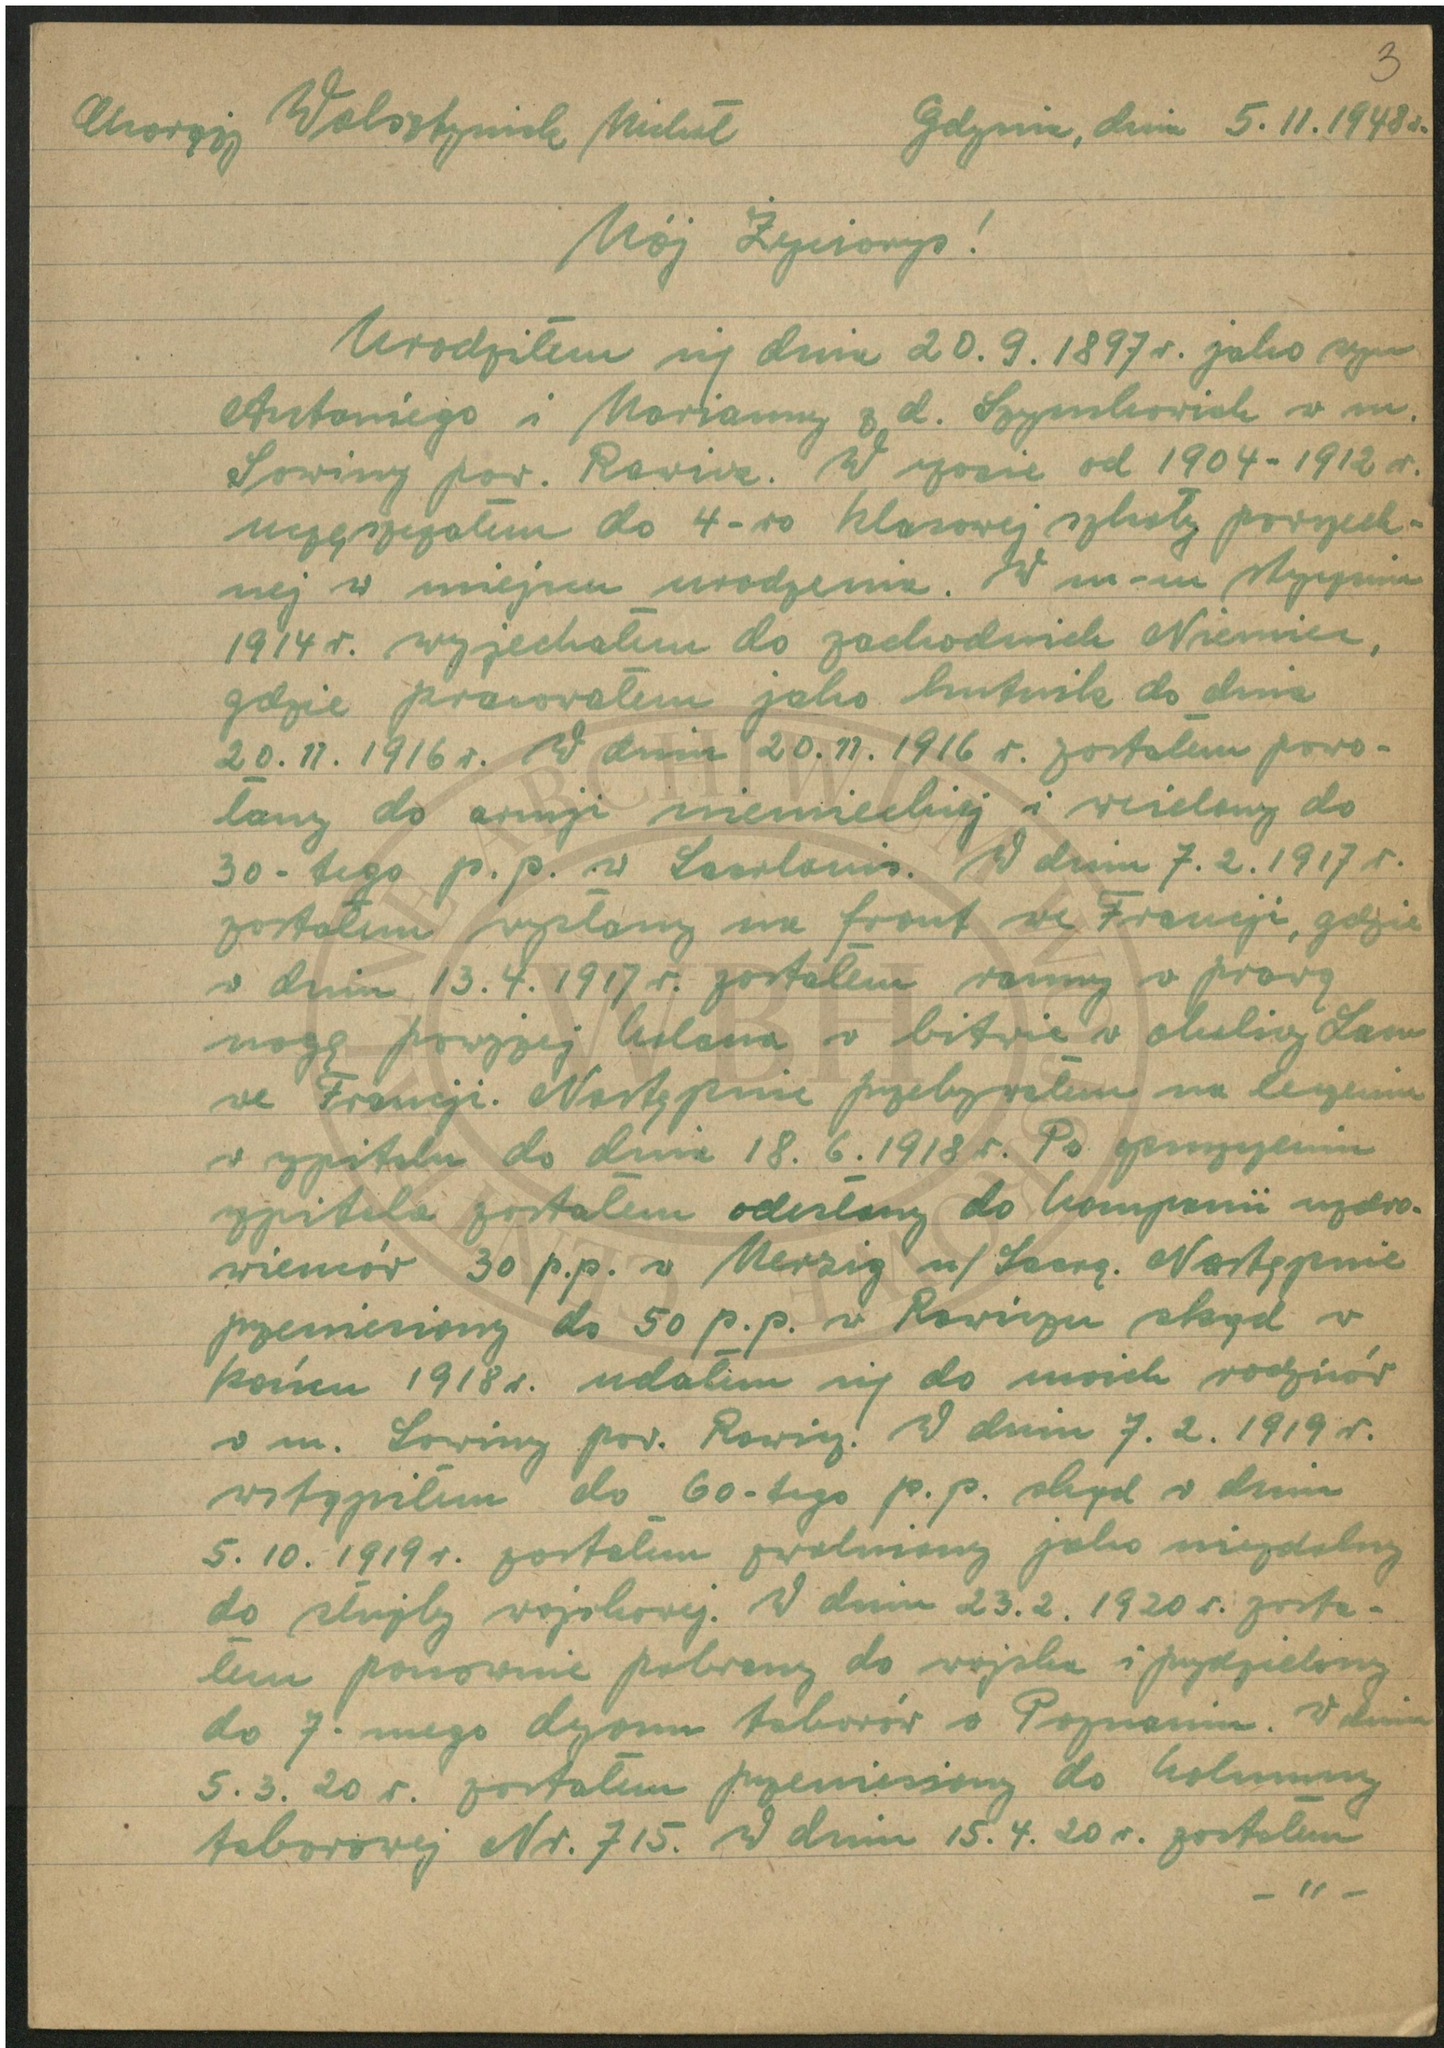 3
Chorąży Wolsztyniak Michał Gdynia, dnia 5.11.1948 r.
Mój Życiorys!
Urodziłem się dnia 20.9.1897 r. jako syn
Antoniego i Marianny z d. Szymkowiak w m.
Sowiny pow. Rawicz. W czasie od 1904-1912 r.
uczęszczałem do 4-ro klasowej szkoły powszech-
nej w miejscu urodzenia. W m-cu styczniu
1914 r. wyjechałem do zachodnich Niemiec,
gdzie pracowałem jako hutnik do dnia
20.11.1916 r. W dniu 20.11.1916 r. zostałem powo-
łany do armji niemieckiej i wcielony do
30-tego p.p. w Saarlouis. W dniu 7.2.1917 r.
zostałem wysłany na front we Francji, gdzie
w dniu 13.4.1917 r. zostałem ranny w prawą
nogę powyżej kolana w bitwie w okolicy Laon
we Francji. Następnie przebywałem na leczeniu
w szpitalu do dnia 18.6.1918 r. Po opuszczeniu
szpitala zostałem odesłany do kompanii uzdro-
wieńców 30 p.p. w Merzig n/Saarą. Następnie
przeniesiony do 50 p.p. w Rawiczu skąd w
końcu 1918 r. udałem się do moich rodziców
w m. Sowiny pow. Rawicz. W dniu 7.2.1919 r.
wstąpiłem do 60-tego p.p. skąd w dniu
5.10.1919 r. zostałem zwolniony jako niezdolny
do służby wojskowej. W dniu 23.2.1920 r. zosta-
łem ponownie pobrany do wojska i przydzielony
do 7-mego dyonu taborów w Poznaniu. W dniu
5.3.20 r. zostałem przeniesiony do kolumny
taborowej Nr. 715. W dniu 15.4.20 r. zostałem
- " -
CENTRALNE ARCHIWUM WOJSKOWE
WBH